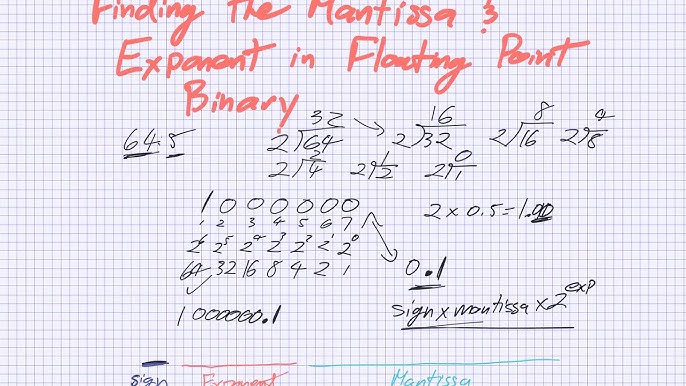 Finding the Mantissa &
Exponent in Floating Point
Binary
64.5
32
2)64
16
2)32
8
2)16
4
2)8
2
2)4
1
2)2
0
2)1
1 0 0 0 0 0 0
1 2 3 4 5 6 7
2⁶ 2⁵ 2⁴ 2³ 2² 2¹ 2⁰
64 32 16 8 4 2 1
2 x 0.5 = 1.00
0.1
1000000.1
sign x mantissa x 2^exp
sign Exponent Mantissa